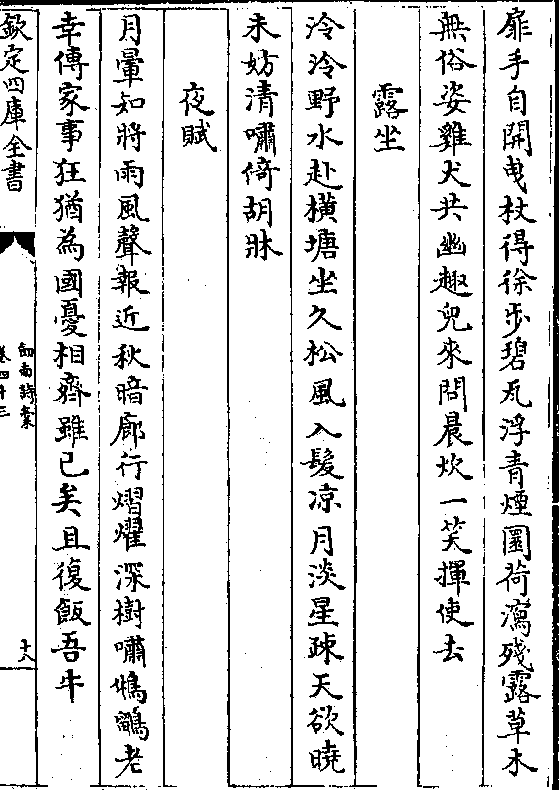 扉手自開曵杖得徐步碧瓦浮青煙園荷瀉殘露草木
無俗姿雞犬共幽趣兒來問晨炊一笑揮使去
露坐
泠泠野水赴橫塘坐久松風入髪凉月淡星疎天欲曉
未妨清嘯倚胡牀
夜賦
月暈知將雨風聲報近秋暗廊行熠燿深樹嘯鵂鶹老
幸傳家事狂猶為國憂相齊雖已矣且復飯吾牛
欽定四庫全書
劍南詩槀
卷四十三
十八